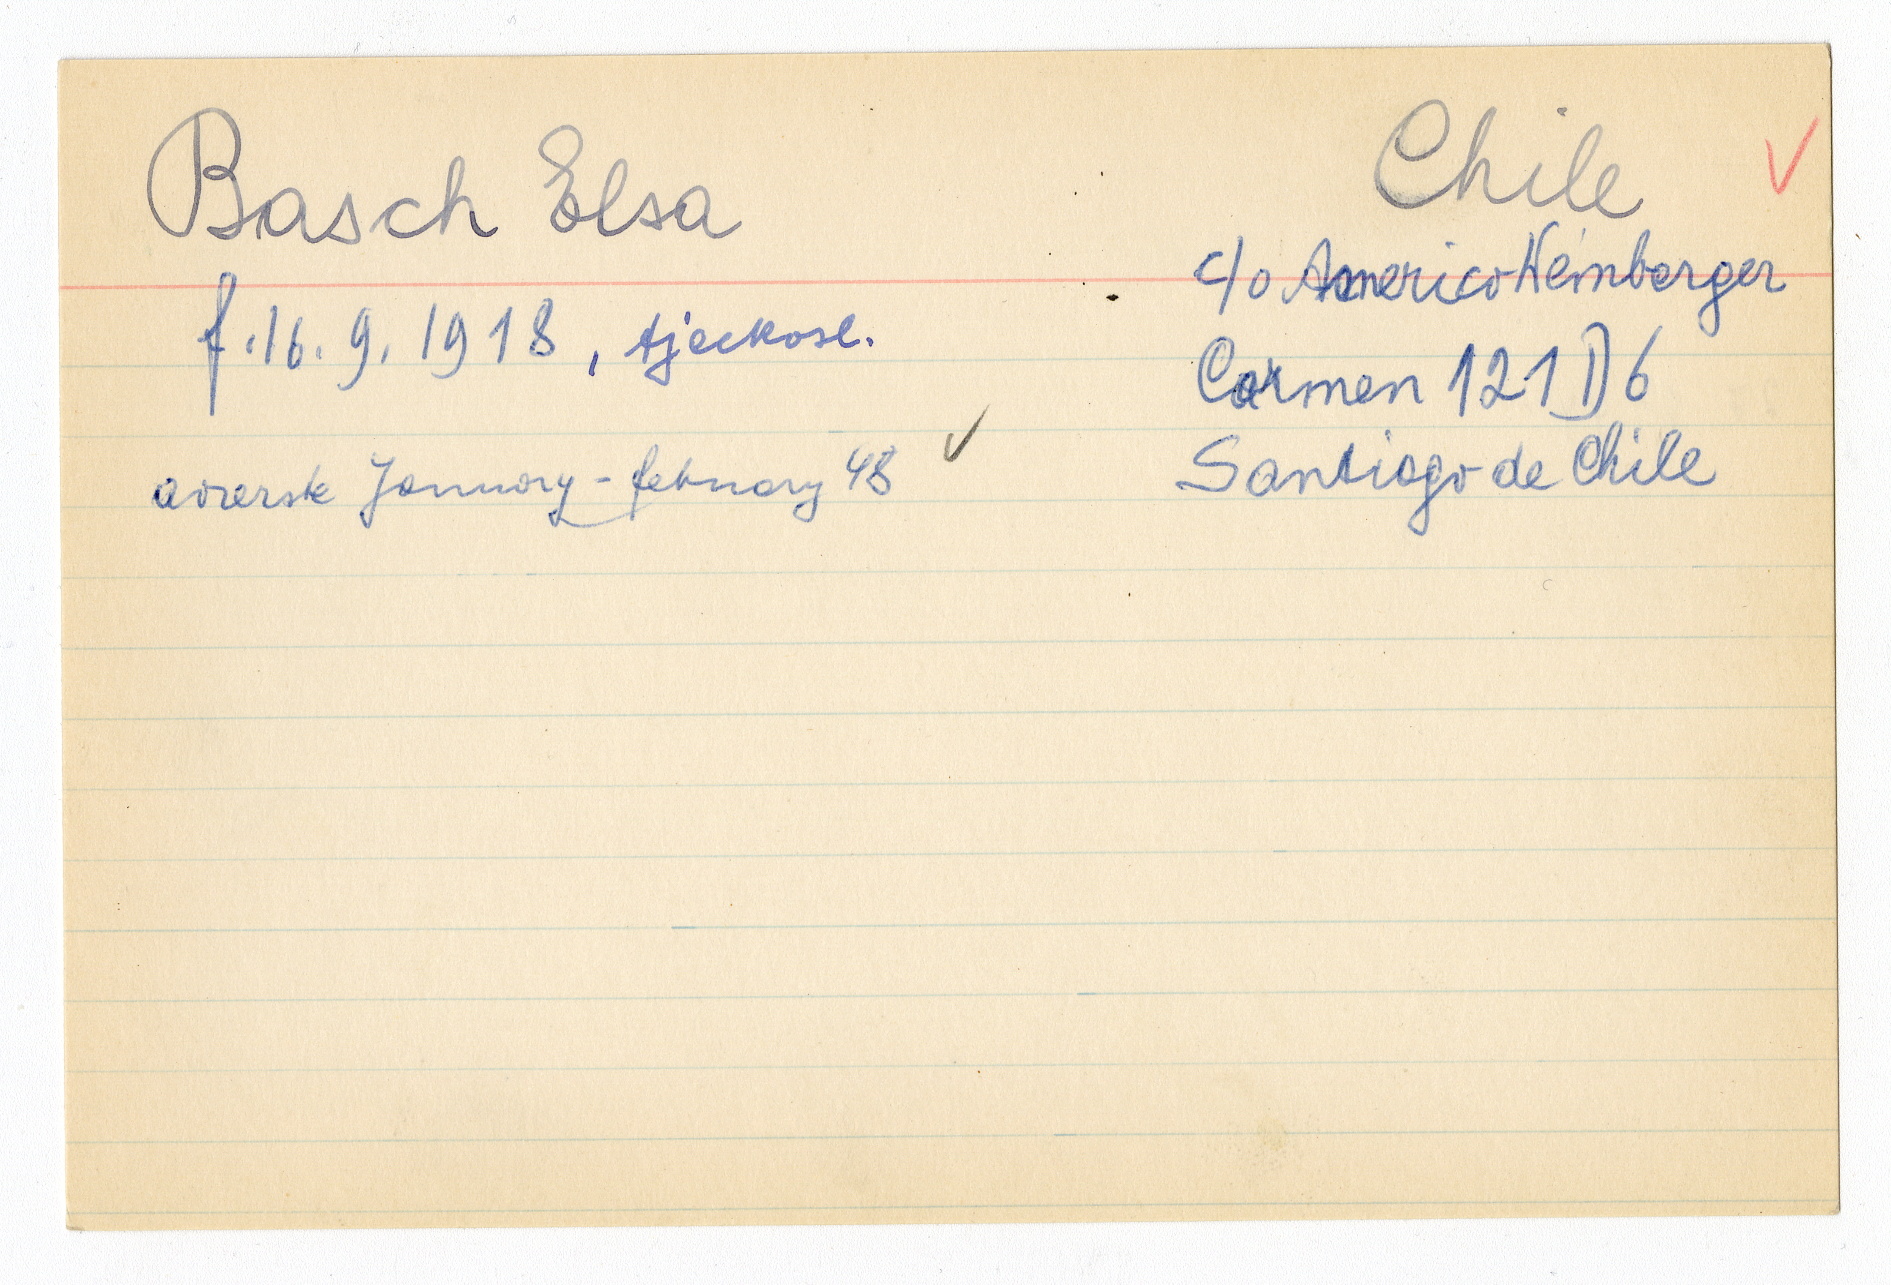 Basch Elsa
Chile
c/o Americo Weinberger
f. 16. 9. 1918, tjeckosl.
Carmen 121 D 6
avreste January - february 48
Santiago de Chile